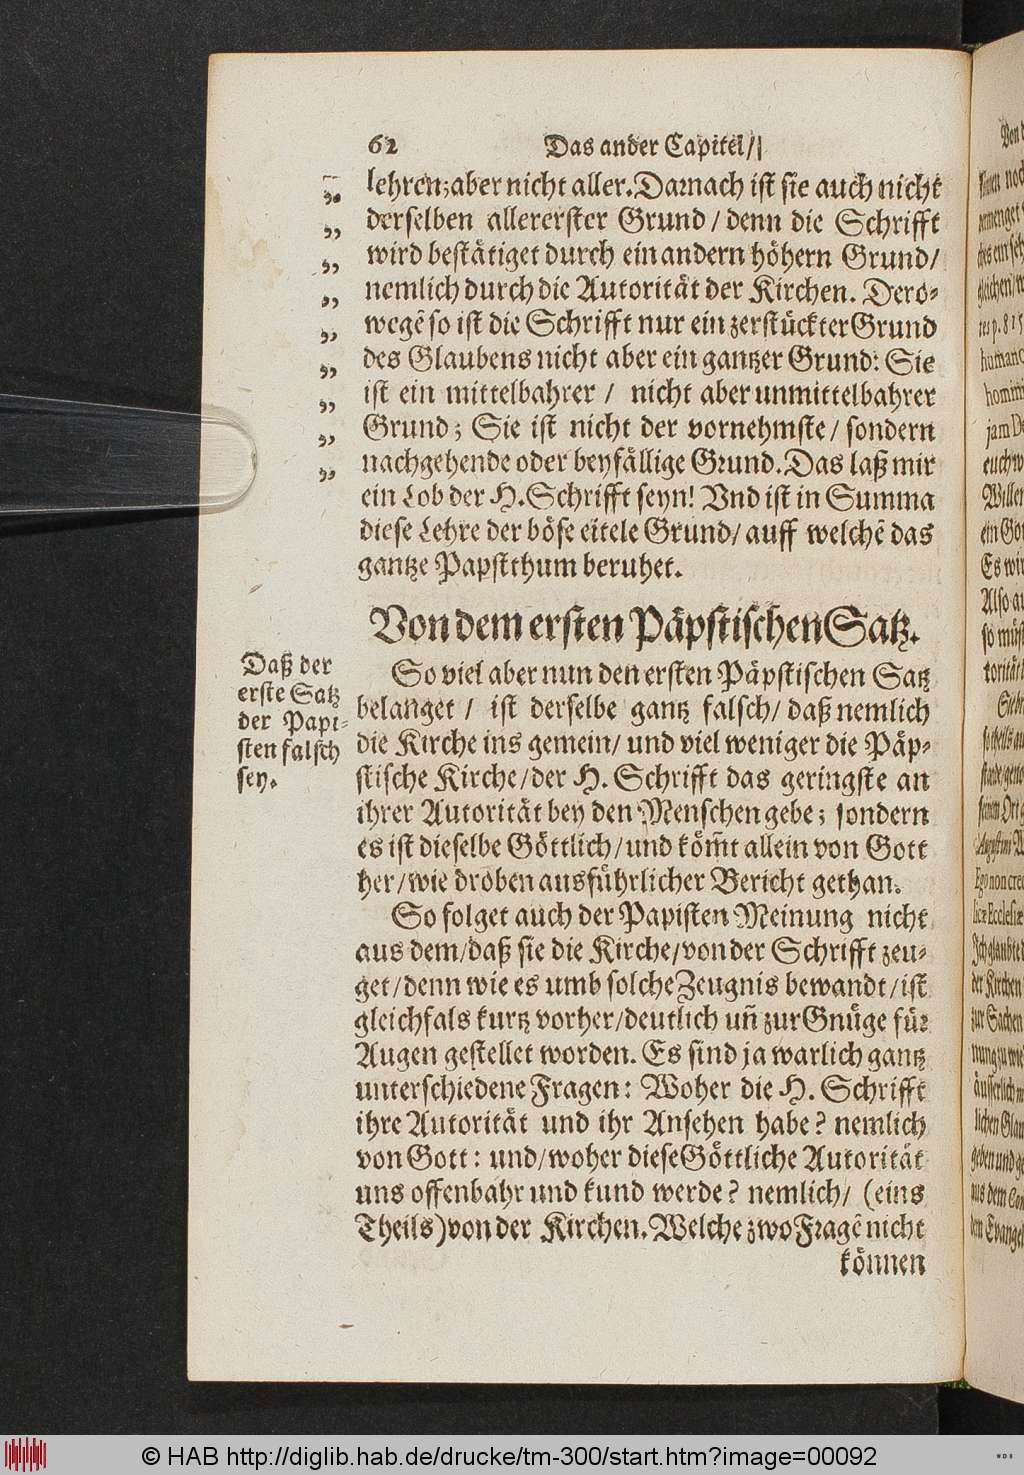 62 Das ander Capitel/
lehren; aber nicht aller. Darnach ist sie auch nicht
derselben allererster Grund / denn die Schrifft
wird bestätiget durch ein andern höhern Grund/
nemlich durch die Autorität der Kirchen. Dero-
wegẽ so ist die Schrifft nur ein zerstückter Grund
des Glaubens nicht aber ein gantzer Grund: Sie
ist ein mittelbahrer / nicht aber unmittelbahrer
Grund; Sie ist nicht der vornehmste/ sondern
nachgehende oder beyfällige Grund. Das laß mir
ein Lob der H. Schrifft seyn! Vnd ist in Summa
diese Lehre der böse eitele Grund/ auff welchẽ das
gantze Papstthum beruhet.
Von dem ersten Päpstischen Satz.
Daß der
erste Satz
der Papi-
sten falsch
sey.
So viel aber nun den ersten Päpstischen Satz
belanget / ist derselbe gantz falsch/ daß nemlich
die Kirche ins gemein/ und viel weniger die Päp-
stische Kirche/ der H. Schrifft das geringste an
ihrer Autorität bey den Menschen gebe; sondern
es ist dieselbe Göttlich/ und köm̃t allein von Gott
her/ wie droben ausführlicher Bericht gethan.
So folget auch der Papisten Meinung nicht
aus dem/ daß sie die Kirche/ von der Schrifft zeu-
get/ denn wie es umb solche Zeugnis bewandt/ ist
gleichfals kurtz vorher/ deutlich uñ zur Gnüge für
Augen gestellet worden. Es sind ja warlich gantz
unterschiedene Fragen: Woher die H. Schrifft
ihre Autorität und ihr Ansehen habe? nemlich
von Gott: und/ woher diese Göttliche Autorität
uns offenbahr und kund werde? nemlich/ (eins
Theils) von der Kirchen. Welche zwo Fragẽ nicht
können
© HAB http://diglib.hab.de/drucke/tm-300/start.htm?image=00092